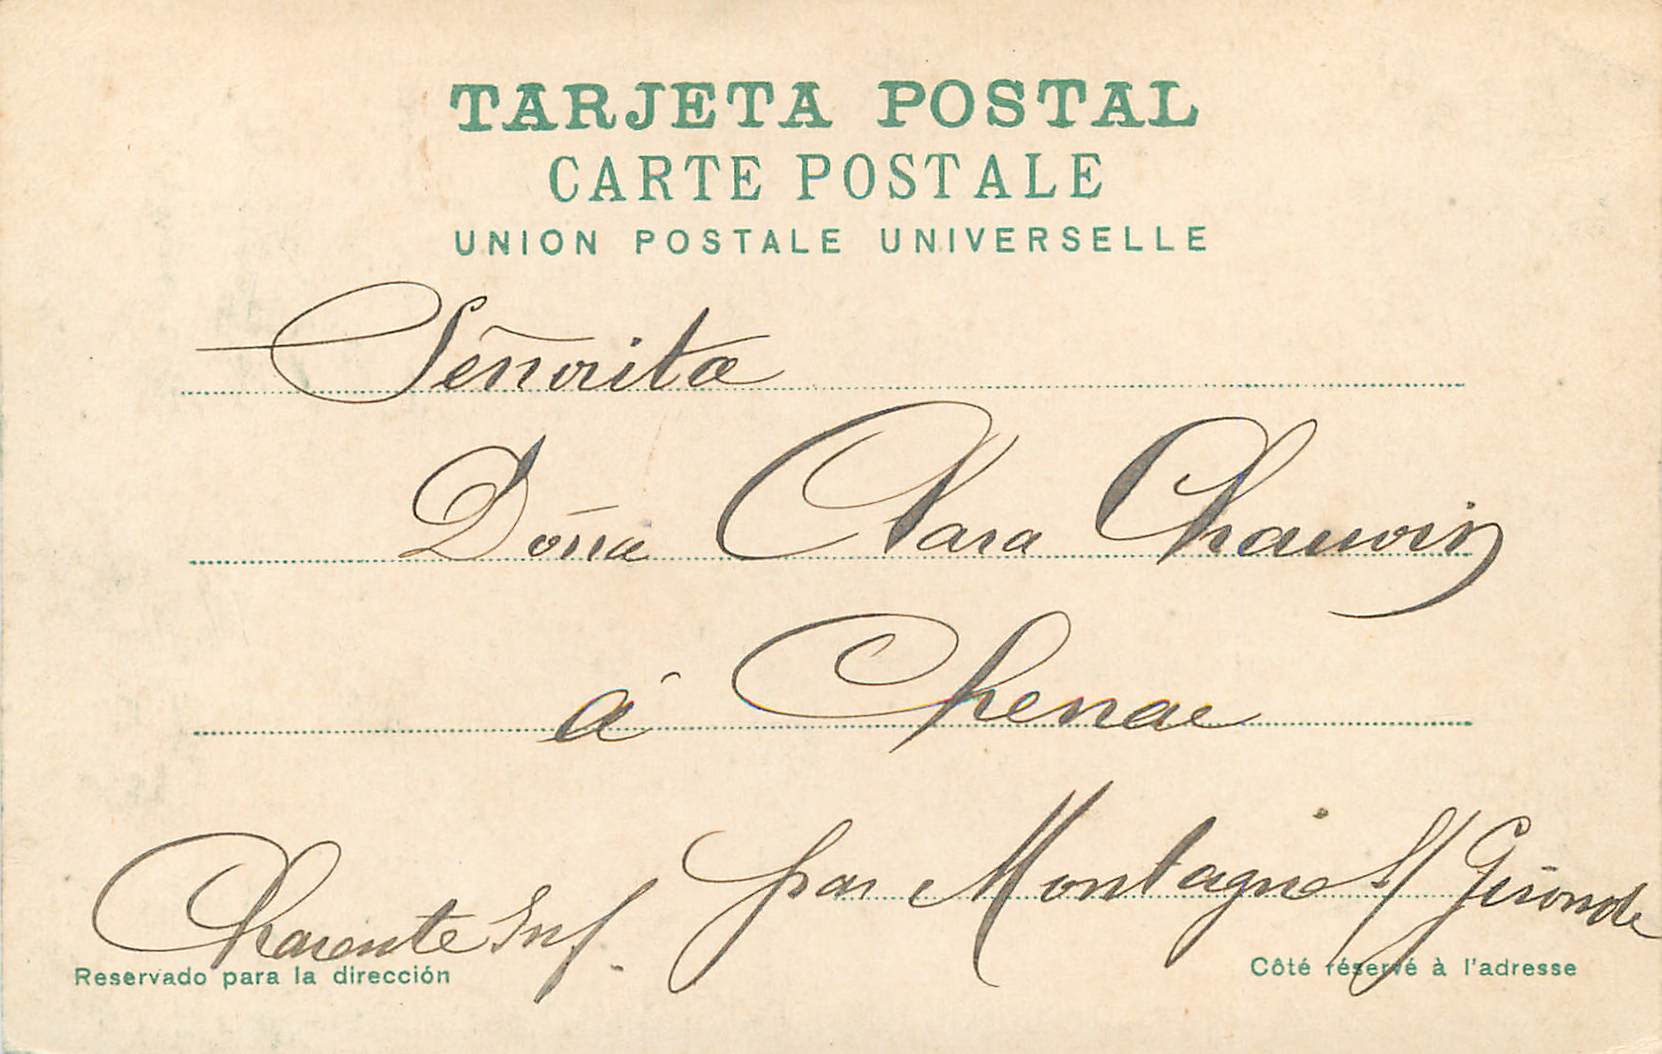 TARJETA POSTAL
CARTE POSTALE
UNION POSTALE UNIVERSELLE
Señorita
Doña Clara Chauvin
á Chenac
par Montagne s/ Gironde
Charente Inf.
Reservado para la dirección
Côté réservé à l'adresse